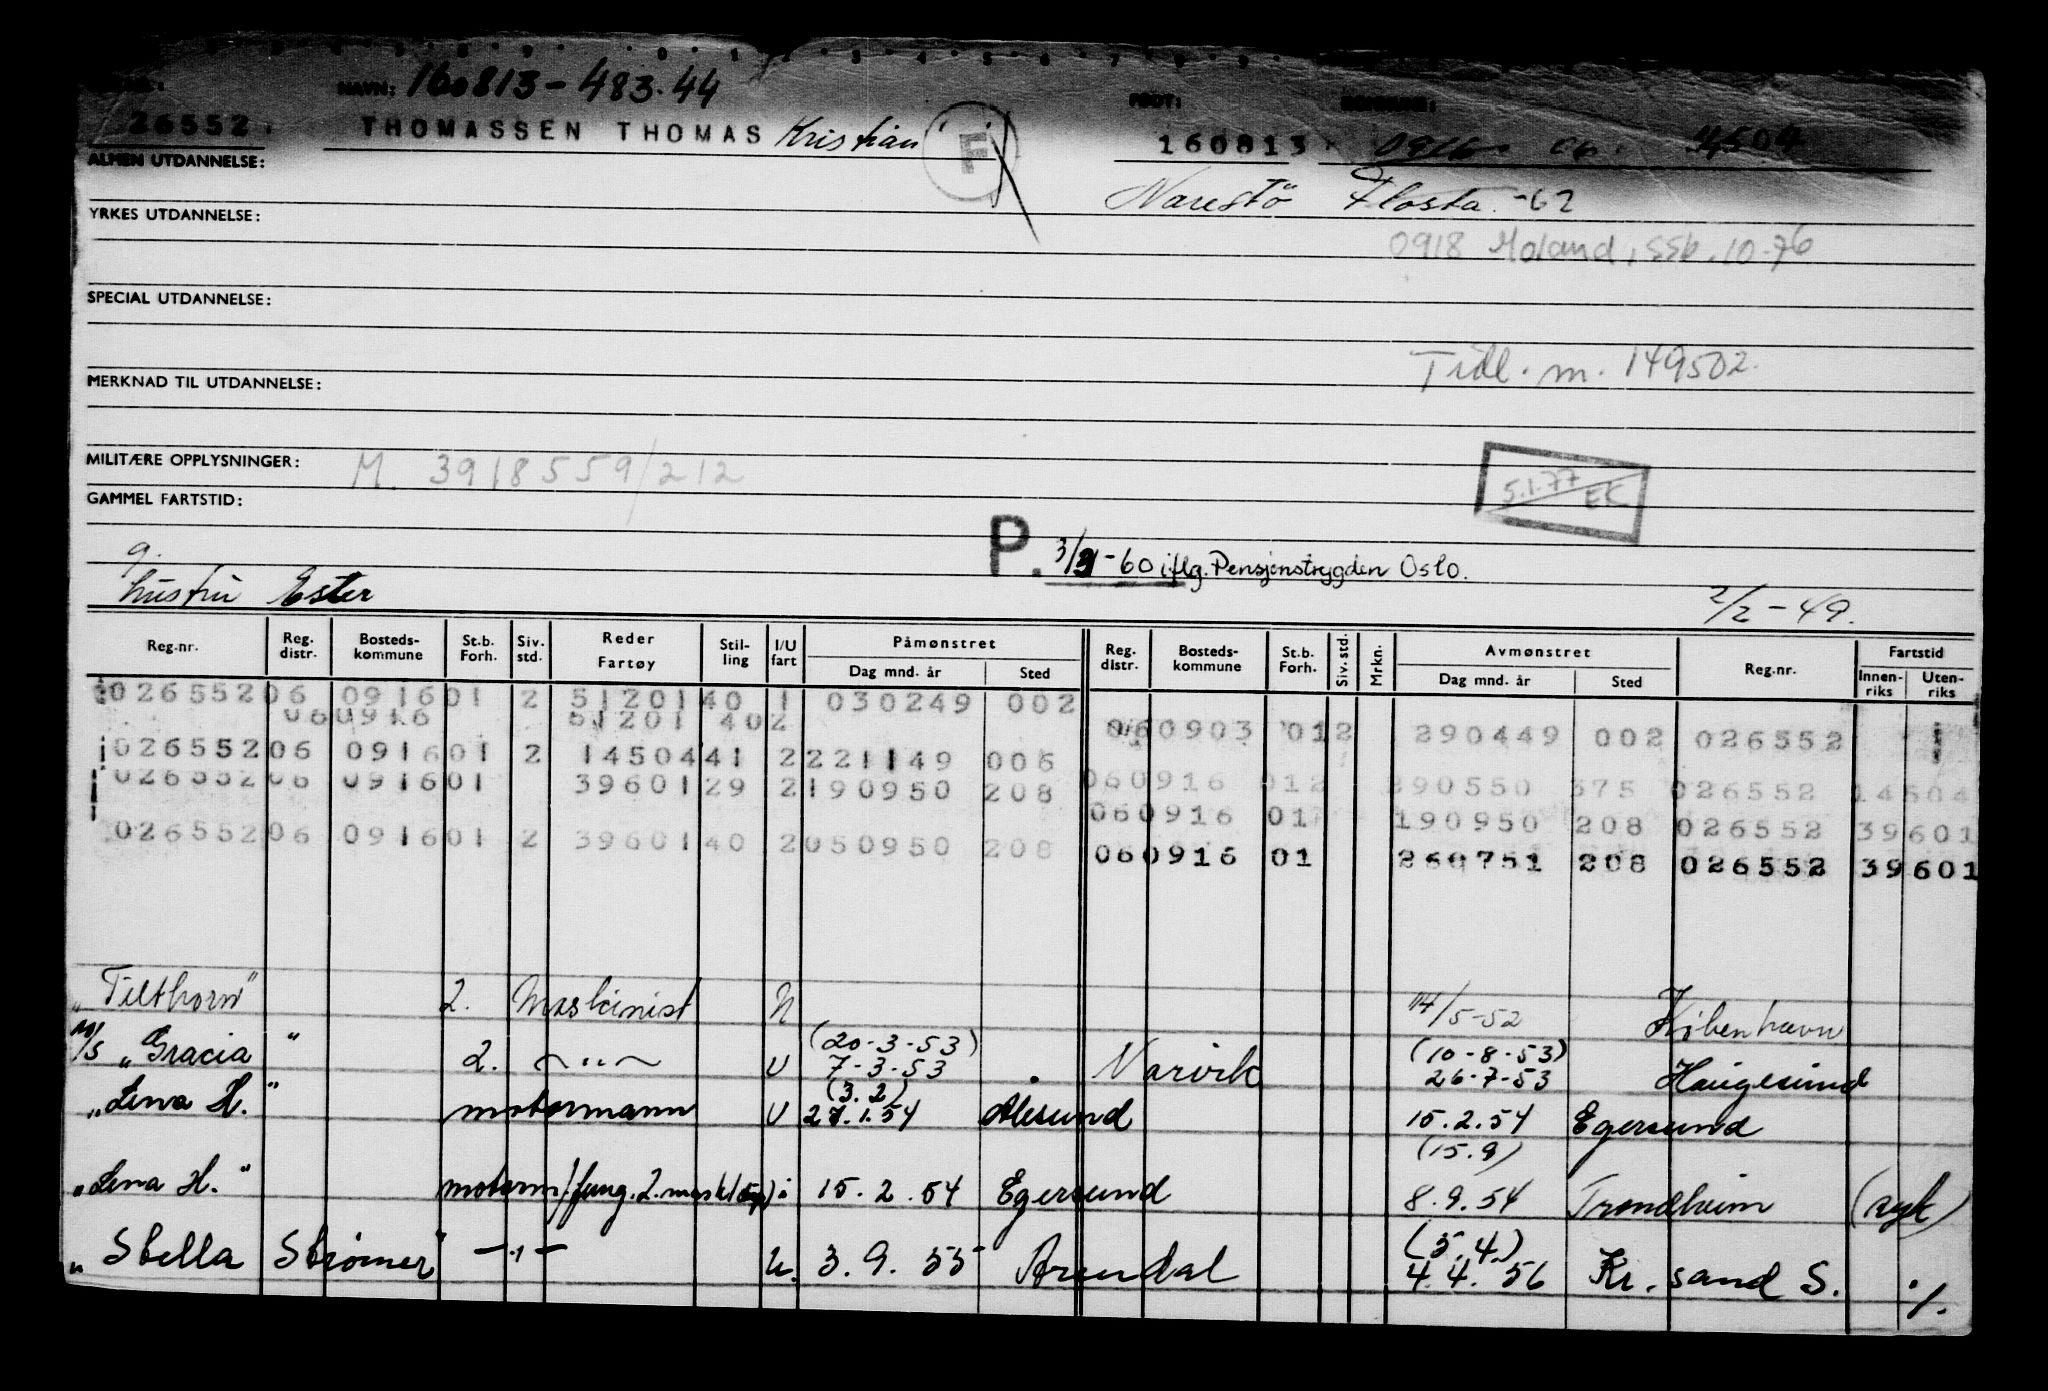 NAVN: 160813-483.44 FØDT:
26552. THOMASSEN THOMAS Kristian F 160813. 0916. 06. 4504
ALMEN UTDANNELSE:
Narestö Flosta -62
YRKES UTDANNELSE:
0918 Moland, SSb. 10-76
SPECIAL UTDANNELSE:
Tidl. m. 149502.
MERKNAD TIL UTDANNELSE:
MILITÆRE OPPLYSNINGER: M. 3918559/212
5.1.77 EK
GAMMEL FARTSTID:
P. 3/3-60 iflg. Pensjonstrygden Oslo.
g.
hustru Ester 2/2-49.
Reg.nr. Reg. distr. Bosteds-kommune St.b. Forh. Siv. std. Reder Fartøy Stil-ling I/U fart Påmønstret Dag mnd. år Sted Reg. distr. Bosteds-kommune St.b. Forh. Siv. std. Mrkn. Avmønstret Dag mnd. år Sted Reg.nr. Fartstid Innen-riks Uten-riks
026552 06 0916 01 2 51201 40 1 030249 002
060916 51201 402
060903 012 290449 002 026552
026552 06 0916 01 2 14504 41 2 221149 006
060916 012 290550 575 026552 14504
026552 06 0916 01 39601 29 2 190950 208
060916 01 190950 208 026552 39601
026552 06 0916 01 2 39601 40 2 050950 208
060916 01 260751 208 026552 39601
"Tilthorn" 2. Maskinist U 14/5-52 København
(20-3-53) (10-8-53)
M/S "Gracia" 2. —"— U 7-3-53 Narvik 26-7-53 Haugesund
(3.2)
"Lena H." motormann U 27.1.54 Ålesund 15.2.54 Egersund
(15.9)
"Lena H." motorm/fung. 2. mask (disp) i 15.2.54 Egersund 8.9.54 Trondheim (syk)
(5.4.)
"Stella Strømer" —"— U. 3.9.55 Arendal 4.4.56 Kr.sand S. ./.